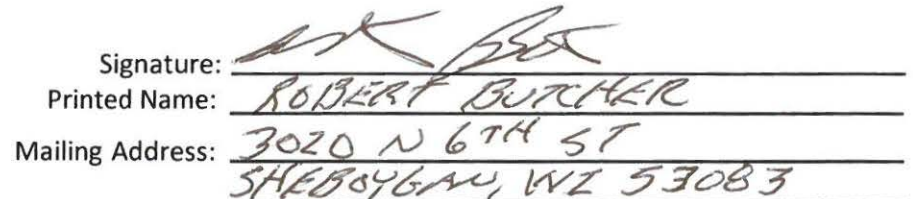 Signature:
Printed Name: ROBERT BUTCHER
Mailing Address: 3020 N 6TH ST
SHEBOYGAN, WI 53083